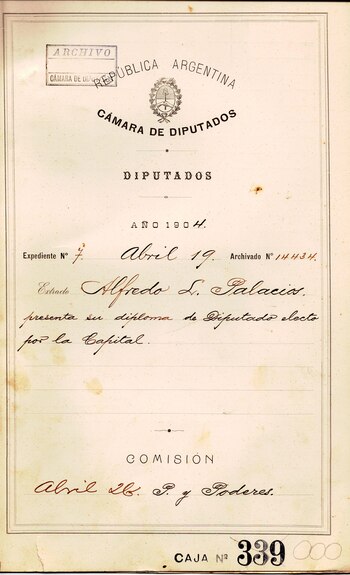 ARCHIVO
CÁMARA DE DIPUTADOS
REPÚBLICA ARGENTINA
CÁMARA DE DIPUTADOS
DIPUTADOS
AÑO 1904.
Expediente Nº 7. Abril 19. Archivado Nº 14434.
Extracto Alfredo L. Palacios.
presenta su diploma de Diputado electo
por la Capital.
COMISIÓN
Abril 26. P. y Poderes.
CAJA Nº 339 000